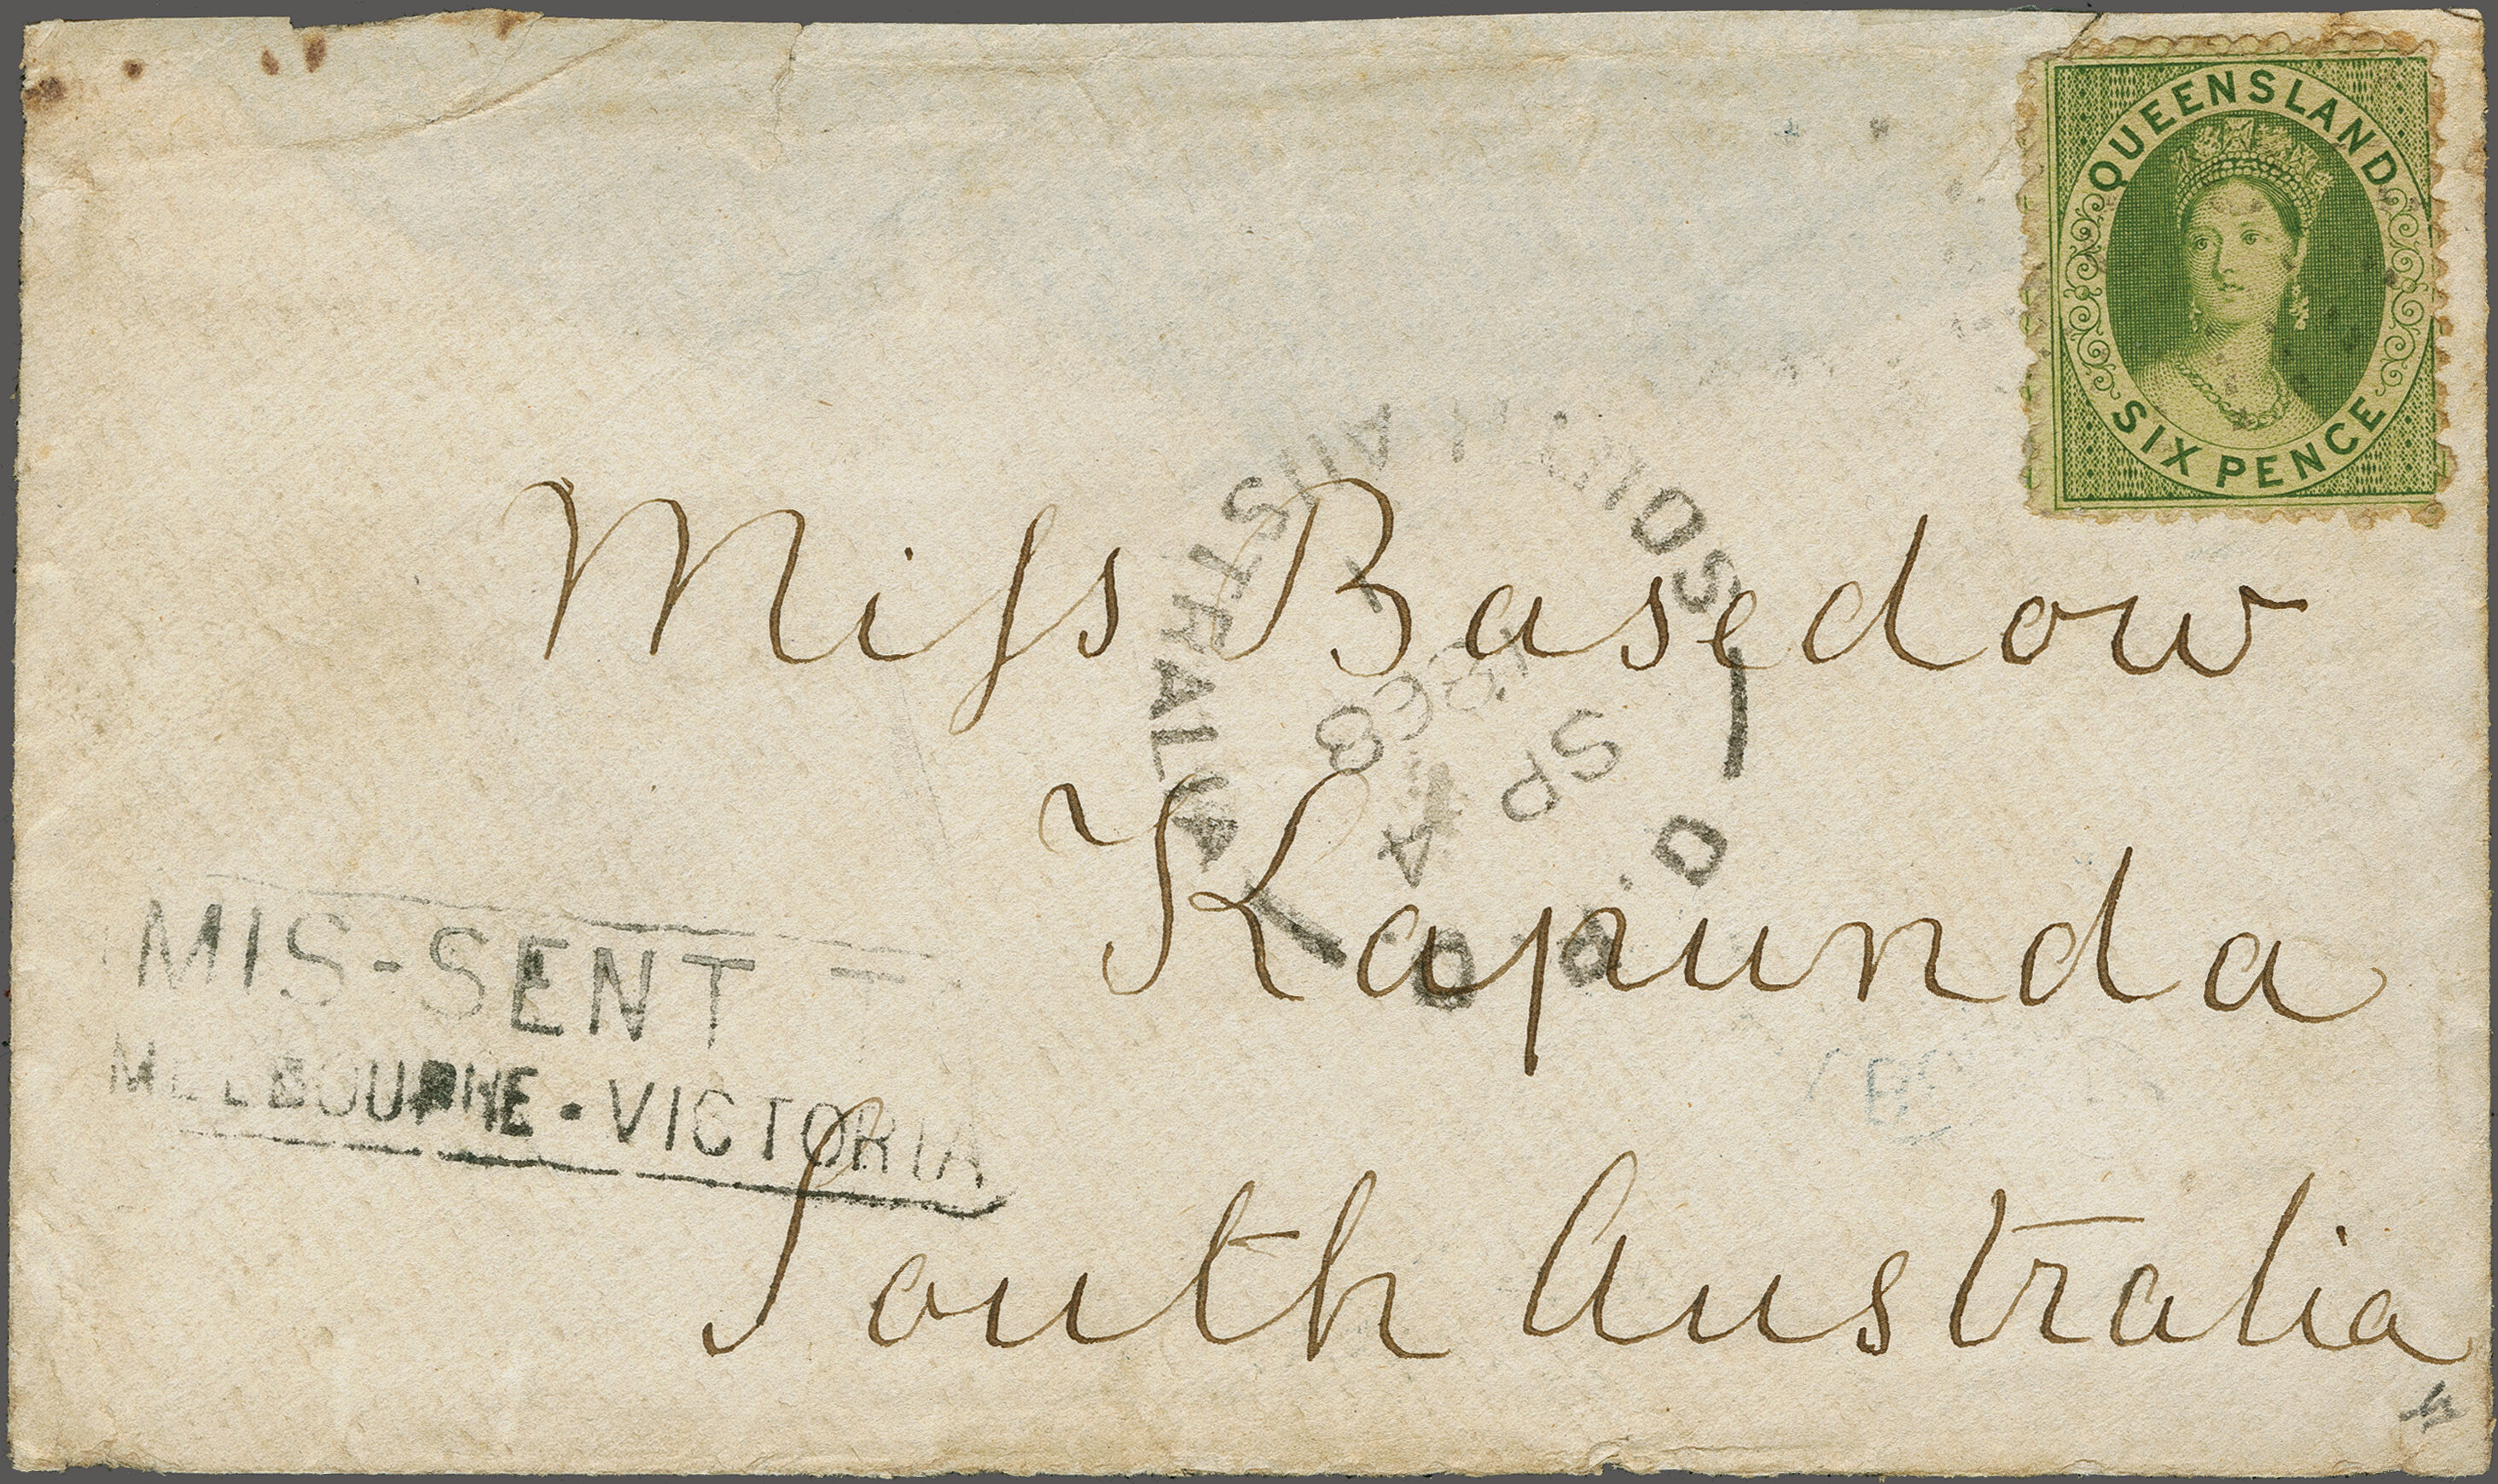 QUEENSLAND
SIX PENCE
Miss Basedow
Kapunda
South Australia
SOUTH AUSTRALIA
G.P.O.
SP 4
MIS-SENT
MELBOURNE · VICTORIA